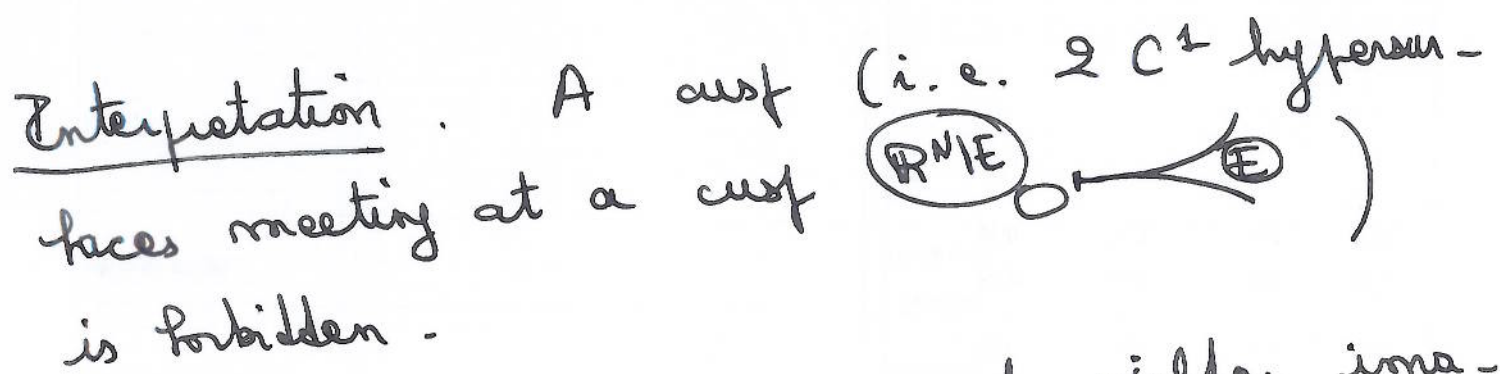 Interpretation. A cusp (i.e. 2 C^1 hypersur-
faces meeting at a cusp R^N\E E )
is forbidden.